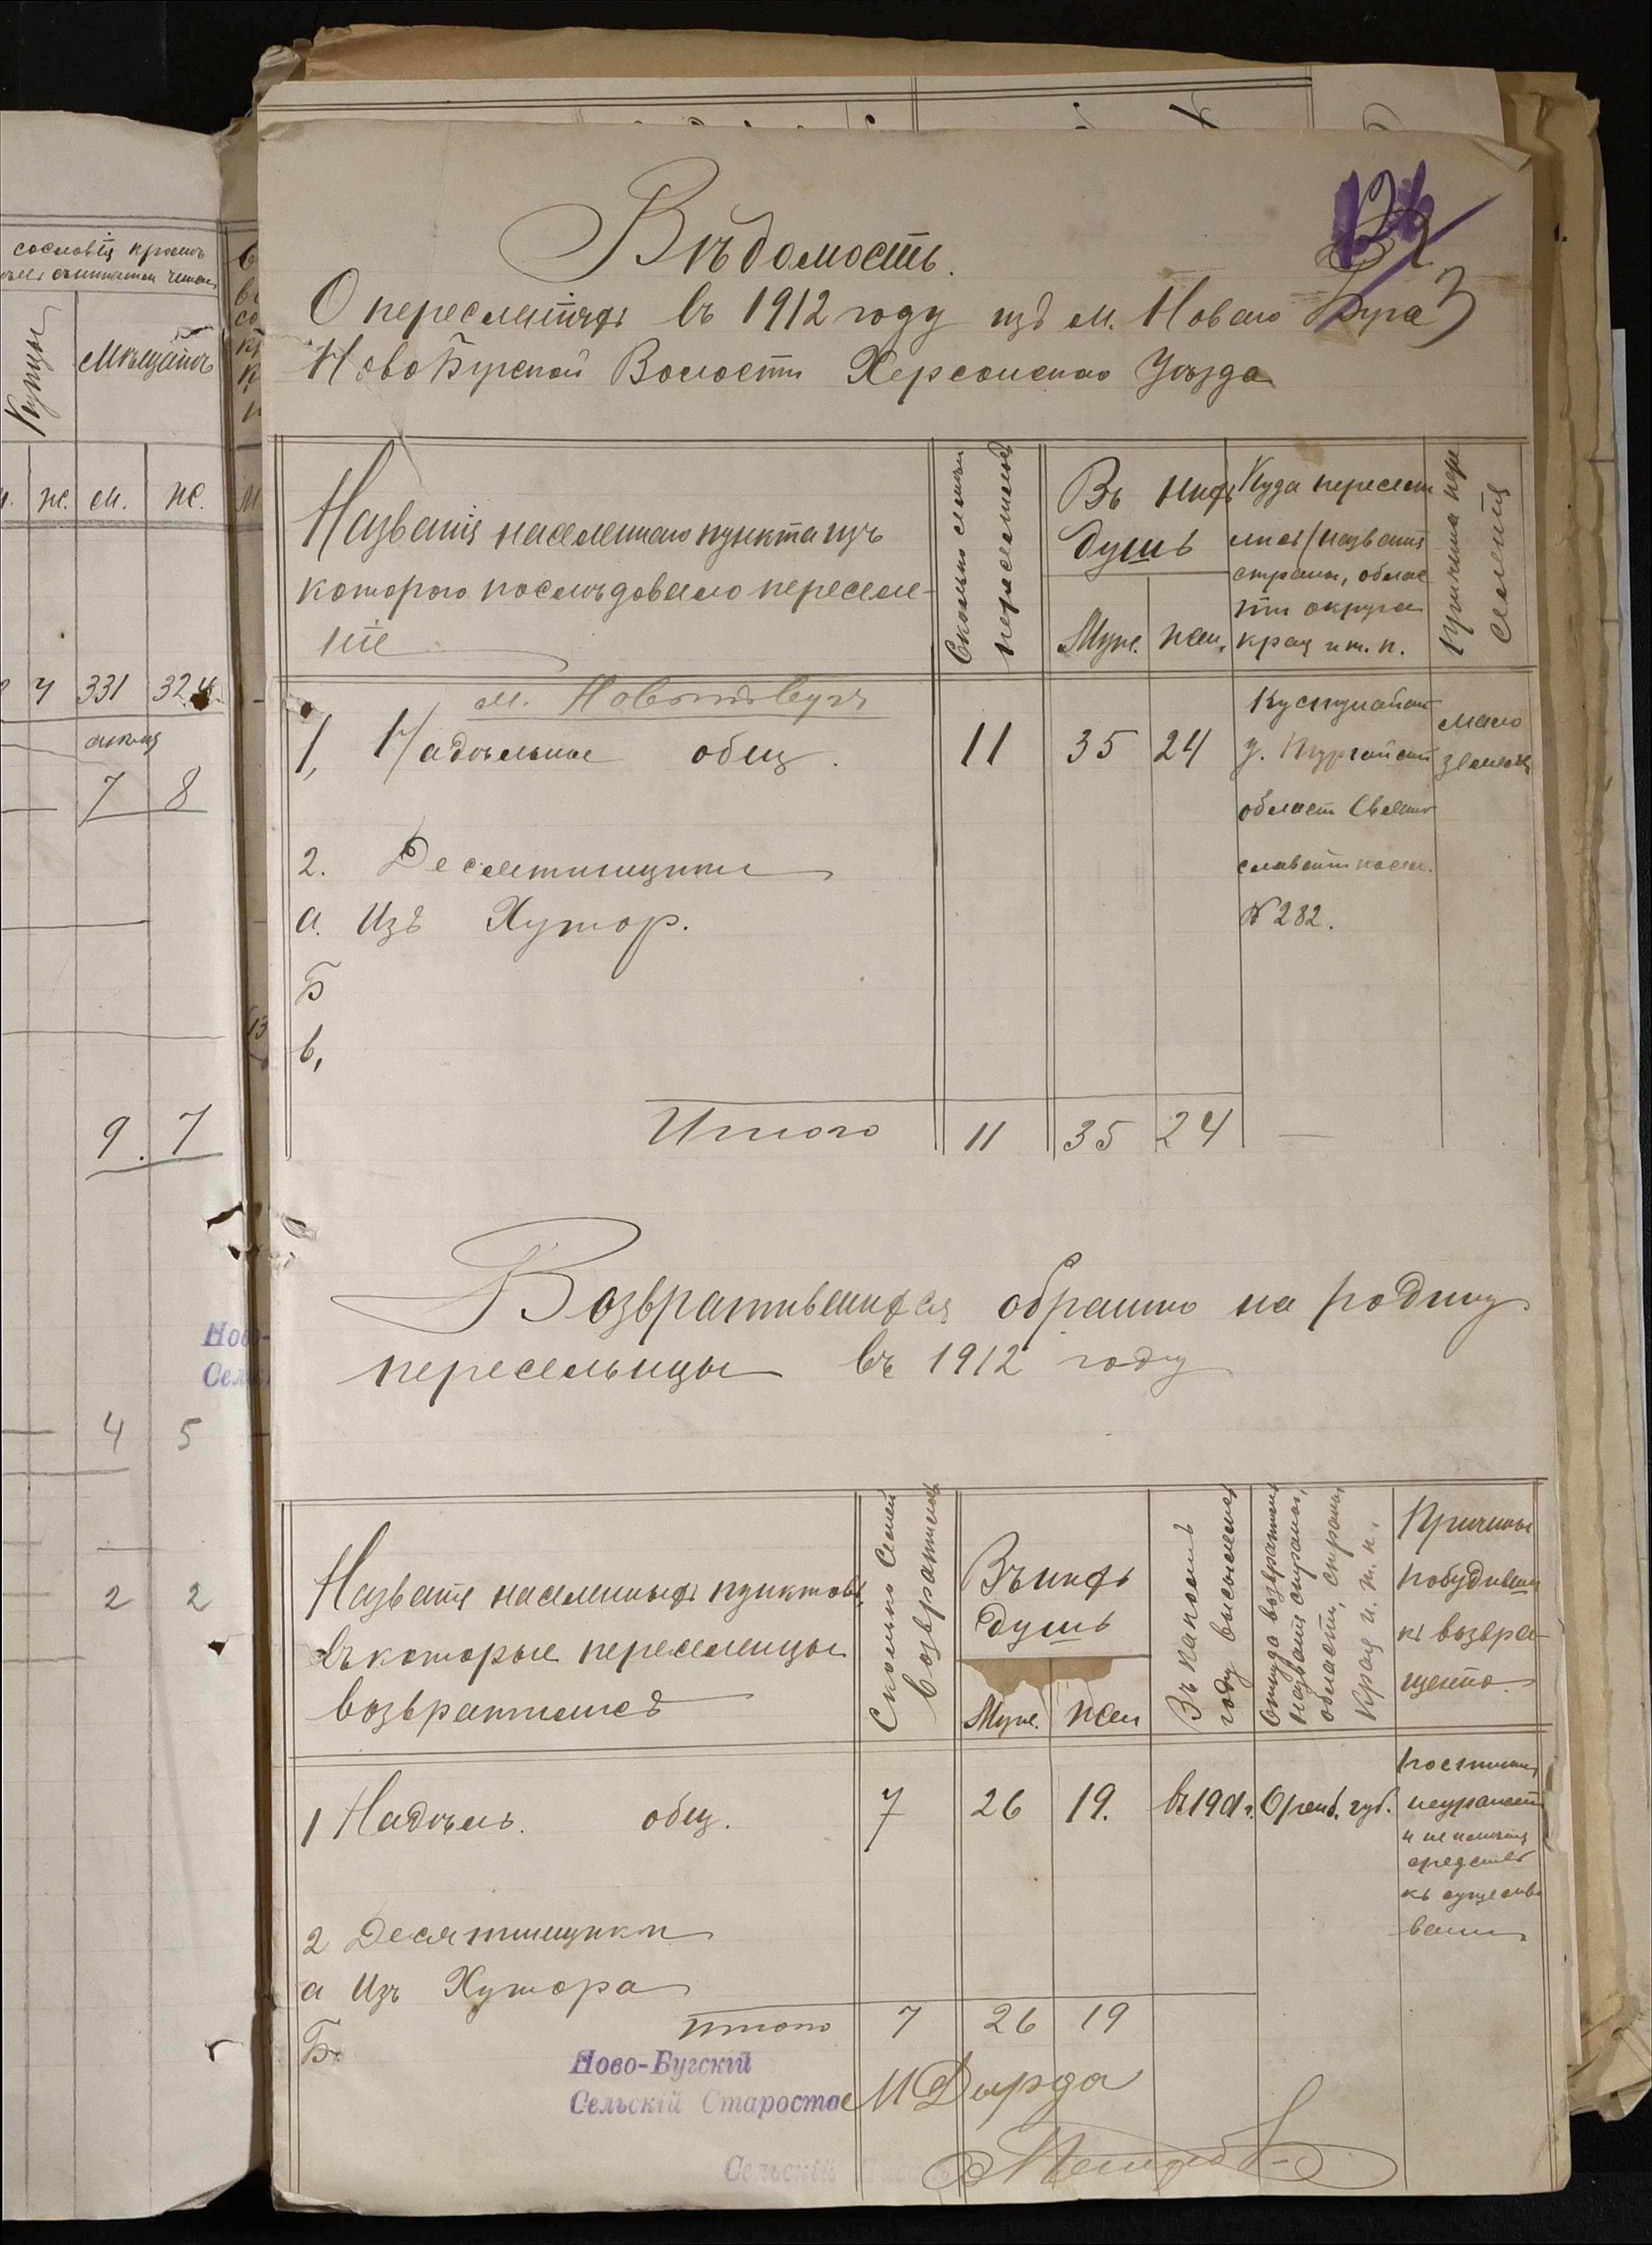 сословія
Купцы
Мѣщанъ
ж. м. ж.
4 331 324
7 8
9. 7
4 5
2 2
Вѣдомость.
О переселеніяхъ въ 1912 году изъ м. Новаго Буга
Ново Бугской Волости Херсонскаго Уѣзда
Названія населеннаго пункта изъ
котораго послѣдовало переселе-
ніе
Сколько семей
переселилось
Въ нихъ
душъ
Муж. жен.
Куда пересели
лись /названія
страны, облас
ти округа
края и т. п.
Причина пере
селенія
м. Новый Бугъ
1, Надѣльное общ. 11 35 24
Кустанайск
у. Тургайской
област Свято
славскій посел.
№ 282.
мало
земелье
2. Десятинщики
а. Изъ Хутор.
Б
в,
Итого 11 35 24 —
Возвратившихся обратно на родину
пересельцы въ 1912 году
Названія населенныхъ пунктовъ
въ которые переселенцы
возвратились
Сколько Семей
возвратилось
Въ нихъ
душъ
Муж. жен
Въ какомъ
году выселились
Откуда возвратились
названія страны,
области, страны,
края и т. п.
Причины
побудившія
къ возвра-
щенію
1 Надѣль. общ. 7 26 19. въ 1901 г. Оренб. губ.
неурожаи
и не имѣнія
средствъ
къ существо
ванію
2 Десятинщики
а Изъ Хутора
Итого 7 26 19
Б.
Ново-Бугскій
Сельскій Староста М Дырда
Сельскій Писарь